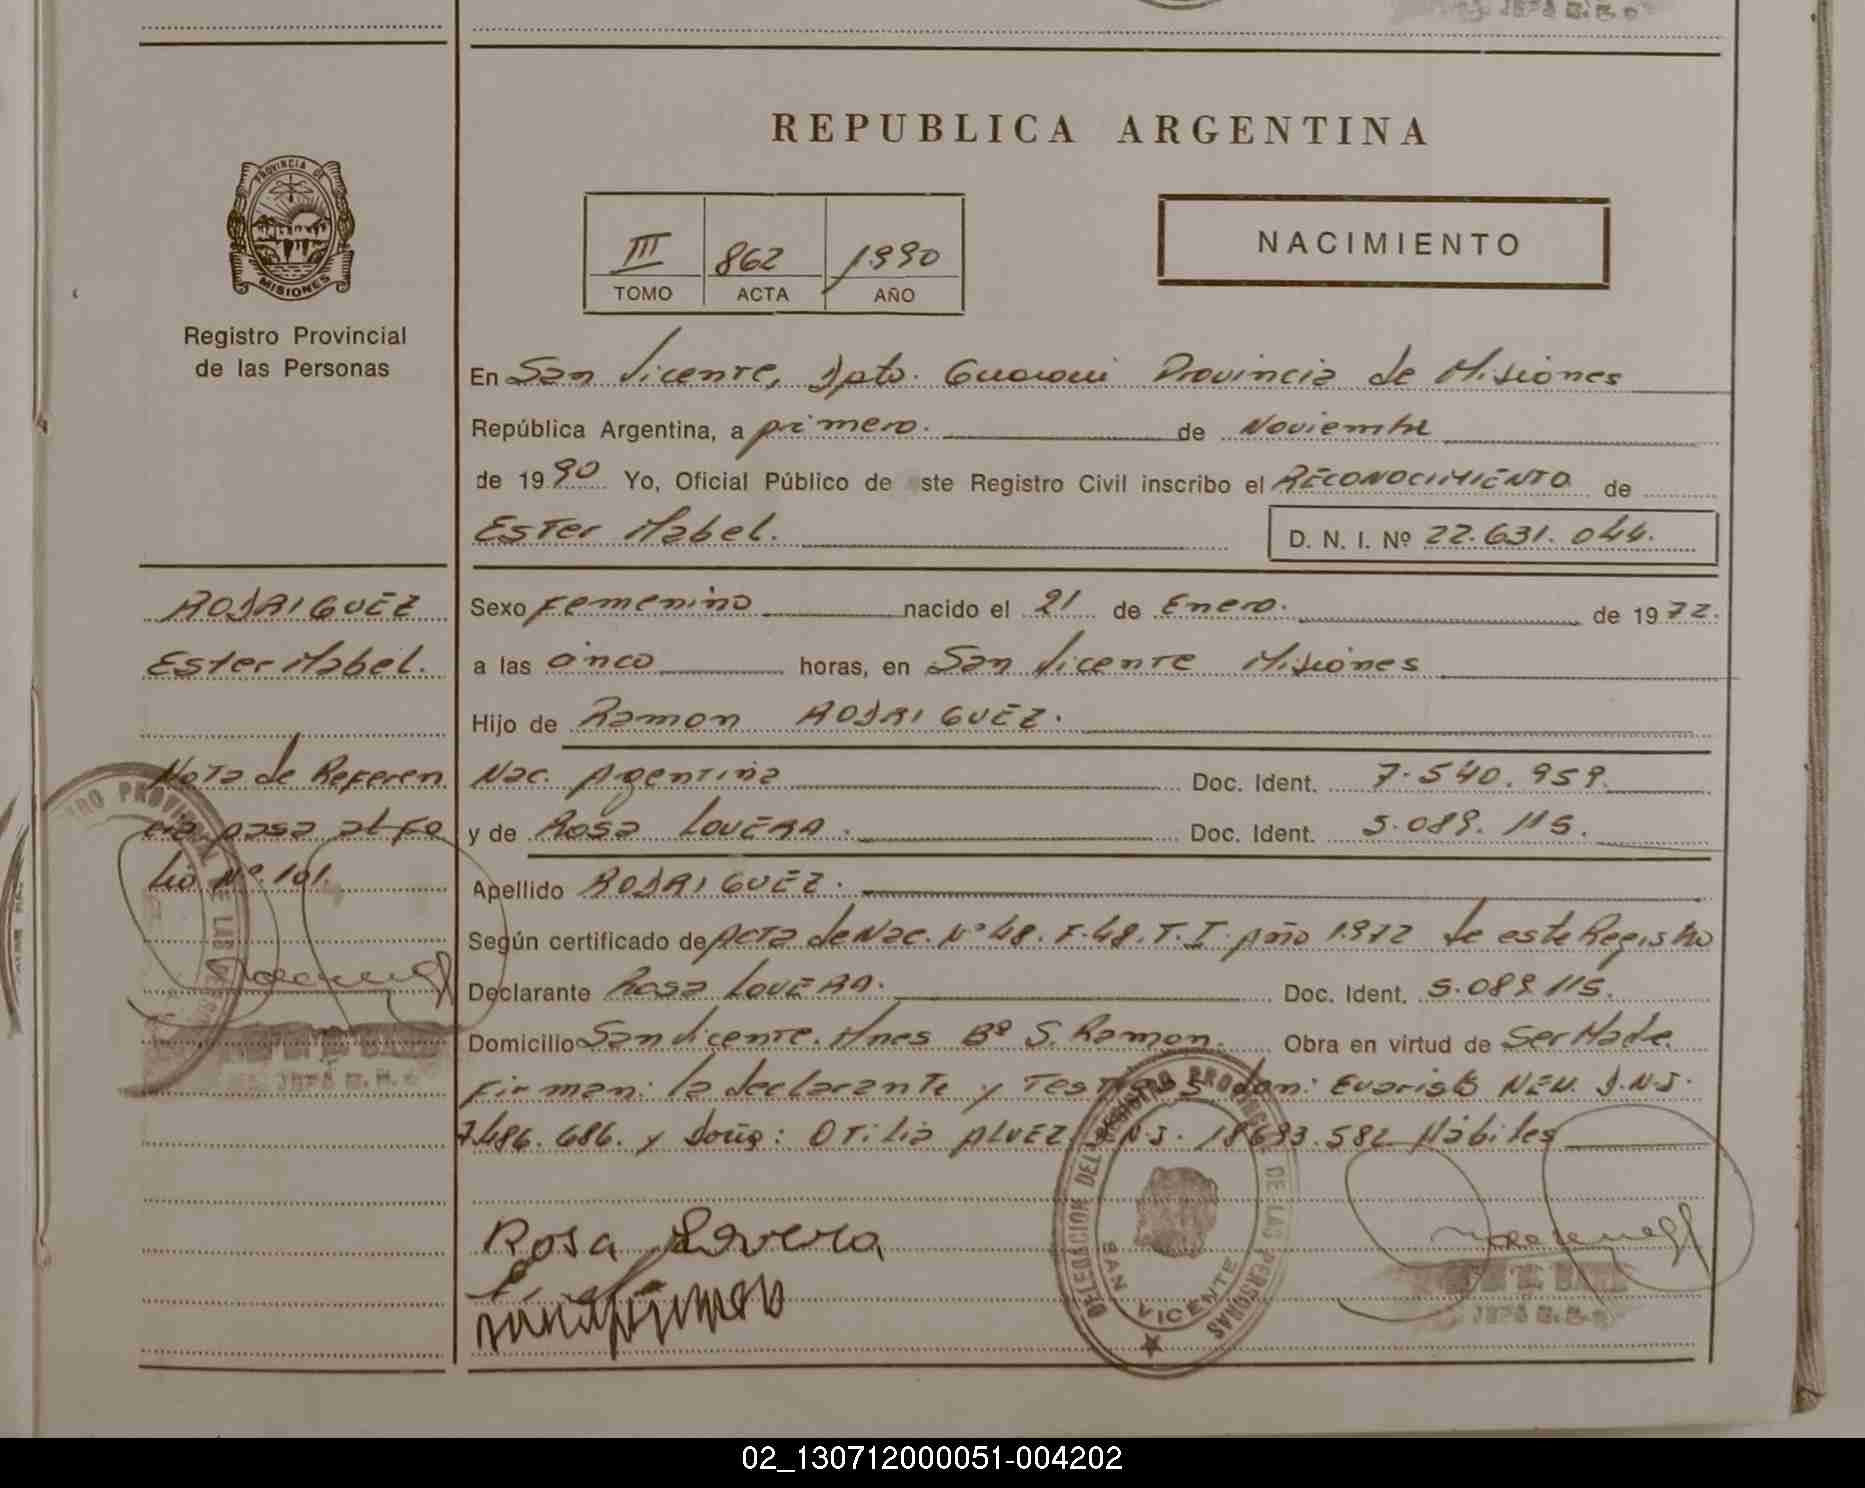 REPUBLICA ARGENTINA
PROVINCIA DE
MISIONES
Registro Provincial
de las Personas
III 862 1990
TOMO ACTA AÑO
NACIMIENTO
En San Vicente, Dpto. Guarani Provincia de Misiones
República Argentina, a primero. de Noviembre
de 1990 Yo, Oficial Público de ste Registro Civil inscribo el RECONOCIMIENTO de
Ester Mabel. D. N. I. Nº 22.631.044.
RODRIGUEZ
Ester Mabel.
Nota de Referen
cia pasa al Fo
lio Nº 101.
Sexo Femenino nacido el 21 de Enero. de 1972.
a las cinco horas, en San Vicente Misiones
Hijo de Ramon RODRIGUEZ.
Nac. Argentina Doc. Ident. 7.540.959.
y de Rosa LOVERA. Doc. Ident. 5.089.115.
Apellido RODRIGUEZ.
Según certificado de Acta de Nac. Nº 48. F.48. T.I. Año 1972 de este Registro
Declarante Rosa LOVERA. Doc. Ident. 5.089.115.
Domicilio San Vicente. Mnes Bº S. Ramon. Obra en virtud de Ser Madre.
Firman: la declarante y Testigos don: Evaristo NEU. D.N.I.
7.486.686. y doña: Otilia ALVEZ. D.N.I. 18.693.582 Hábiles
Rosa Lovera
DELEGACION DEL REGISTRO PROVINCIAL DE LAS PERSONAS
SAN VICENTE
02_130712000051-004202